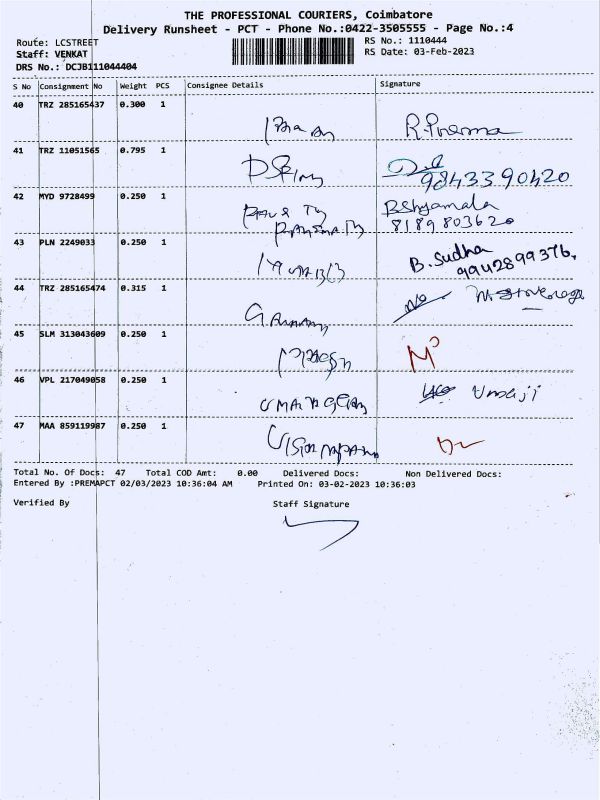 THE PROFESSIONAL COURIERS, Coimbatore
Delivery Runsheet - PCT - Phone No.:0422-3505555 - Page No.:4
Route: LCSTREET
RS No.: 1110444
Staff: VENKAT
RS Date: 03-Feb-2023
DRS No.: DCJB111044404
S No Consignment No Weight PCS Consignee Details Signature
40 TRZ 285165437 0.300 1
R. Prema
41 TRZ 11051565 0.795 1
9843390420
42 MYD 9728499 0.250 1
B.Shyamala
8189803620
43 PLN 2249033 0.250 1
B. Sudha
9942899376.
44 TRZ 285165474 0.315 1
45 SLM 313043609 0.250 1
46 VPL 217049058 0.250 1
Umaji
47 MAA 859119987 0.250 1
Total No. Of Docs: 47 Total COD Amt: 0.00 Delivered Docs: Non Delivered Docs:
Entered By :PREMAPCT 02/03/2023 10:36:04 AM Printed On: 03-02-2023 10:36:03
Verified By Staff Signature